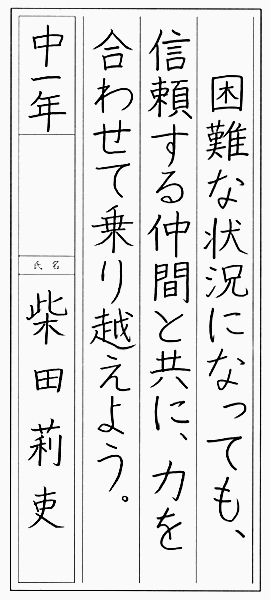 困難な状況になっても、
信頼する仲間と共に、力を
合わせて乗り越えよう。
中一年
氏名
柴田莉吏